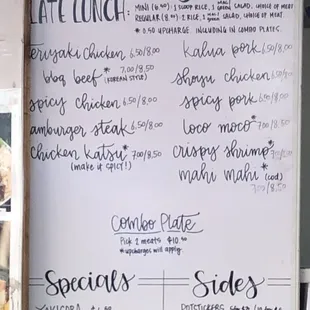 LATE LUNCH:
MINI (6.50): 1 SCOOP RICE, SALAD, CHOICE OF MEAT
REGULAR (8.00): 2 RICE, SALAD, CHOICE OF MEAT.
* 0.50 UPCHARGE. INCLUDING IN COMBO PLATES.
eriyaki chicken 6.50/8.00
bbq beef* 7.00/8.50
(KOREAN STYLE)
spicy chicken 6.50/8.00
amburger steak 6.50/8.00
chicken katsu* 7.00/8.50
(make it spicy!)
kalua pork 6.50/8.00
shoyu chicken 6.50/8.00
spicy pork 6.50/8.00
loco moco* 7.00/8.50
crispy shrimp* 7.00/8.50
mahi mahi* (cod)
7.00/8.50
Combo Plate
Pick 2 meats $10.50
*upcharges will apply.
Specials
Sides
YAKISOBA
POTSTICKERS